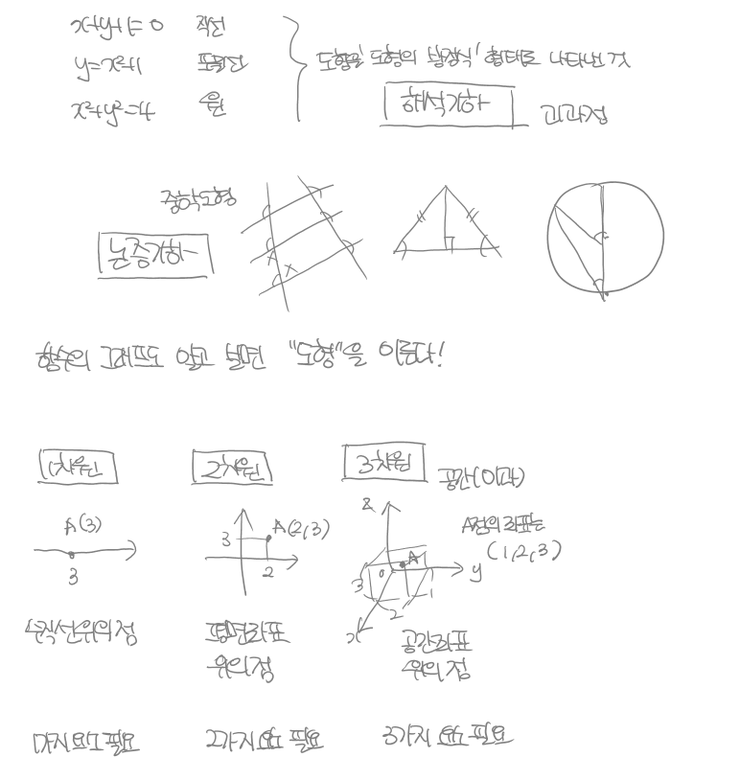 x+y+1=0 직선
y=x²+1 포물선
x²+y²=4 원
도형을 '도형의 방정식' 형태로 나타낸 것
해석기하 고교과정
중학도형
논증기하
x
x
함수의 그래프도 알고 보면 "도형"을 이룬다!
1차원 2차원 3차원 공간(이과)
A(3)
3
3 A(2,3)
2
z
A점의 좌표는
(1,2,3)
3 0 A y
1
2
x
수직선위의점
평면좌표
위의점
공간좌표
위의점
1가지 요소 필요 2가지 요소 필요 3가지 요소 필요